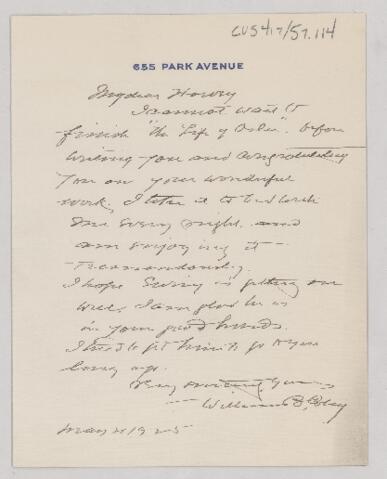 CUS417/57.114
655 PARK AVENUE
My dear Harvey
I cannot wait to
finish "The Life of Osler" before
writing you and congratulating
you on your wonderful
work. I take it to bed with
me every night and
am enjoying it
tremendously.
I hope is getting on
well. I am glad he is
in your good hands.
I tried to get him to go to you
long ago.
Very sincerely yours
William B. Coley
May 4 1925